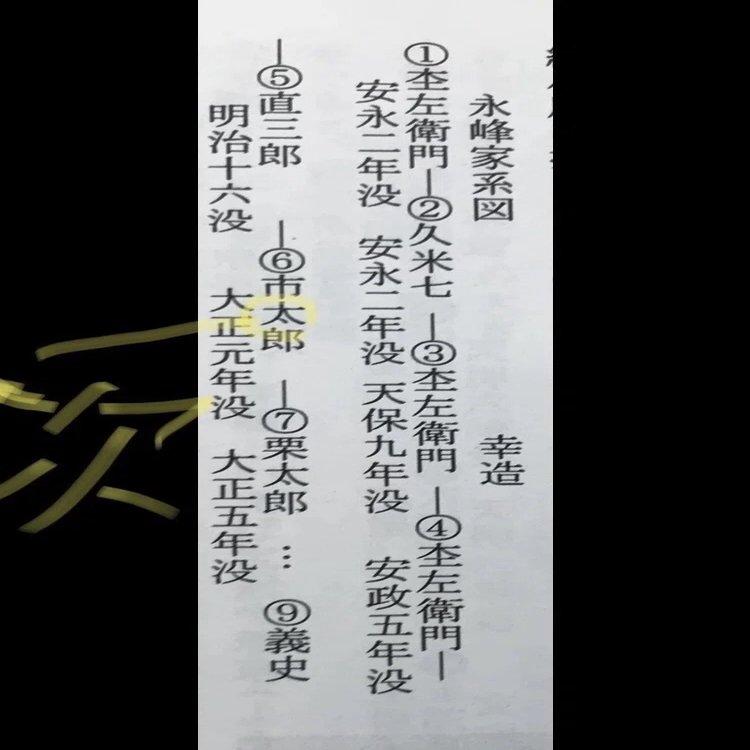 永峰家系図　幸造
①杢左衛門―②久米七―③杢左衛門―④杢左衛門―
安永二年没　安永二年没　天保九年没　安政五年没
―⑤直三郎　―⑥市太郎　―⑦栗太郎　…　⑨義史
明治十六没　大正元年没　大正五年没
次